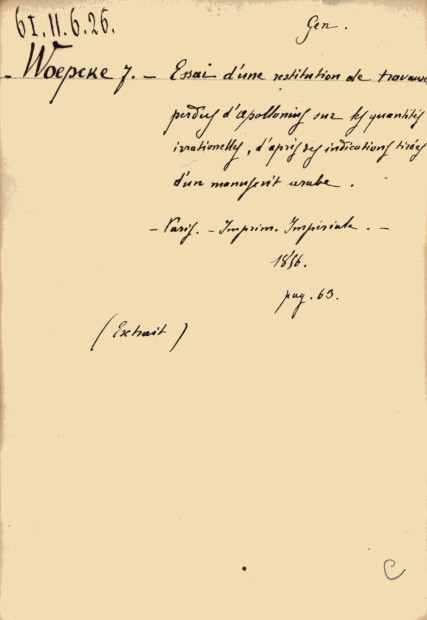 61.11.6.26.
Gen.
- Woepcke J. - Essai d'une restitution de travaux
perdus d'Apollonius sur les quantités
irrationelles, d'après des indications tirées
d'un manuscrit arabe.
- Paris. - Imprim. Impériale. -
1856.
pag. 63.
(Extrait)
C